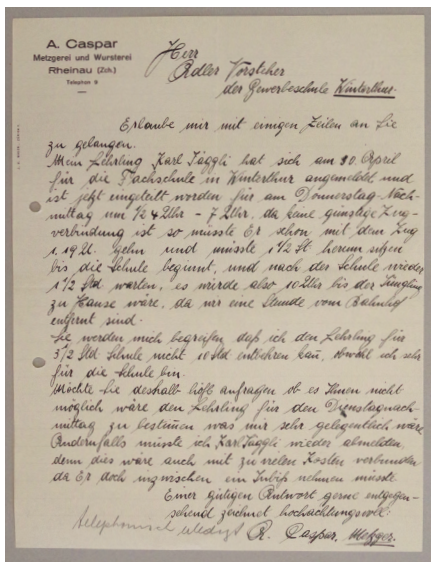 A. Caspar
Metzgerei und Wursterei
Rheinau (Zch.)
Telephon 9
Herr
Adler Vorsteher
der Gewerbeschule Winterthur.
Erlaube mir mit einigen Zeilen an Sie
zu gelangen.
Mein Lehrling Karl Jäggli hat sich am 20 April
für die Fachschule in Winterthur angemeldet und
ist jetzt eingeteilt worden für am Donnerstag-Nach-
mittag um 1/2 4 Uhr - 7 Uhr, da keine günstige Zug-
verbindung ist so müsste Er schon mit dem Zug
1.19 U. gehn und müsste 1 1/2 St. herum sitzen
bis die Schule beginnt, und nach der Schule wieder
1 1/2 Std warten, es würde also 10 Uhr bis der Jüngling
zu Hause wäre, da wir eine Stunde vom Bahnhof
entfernt sind.
Sie werden mich begreifen daß ich den Lehrling für
3 1/2 Std Schule nicht 10 Std entbehren kan, obwohl ich sehr
für die Schule bin.
Möchte Sie deshalb höfl anfragen ob es Ihnen nicht
möglich wäre den Lehrling für den Dienstagnach-
mittag zu bestimen was mir sehr gelegentlich wäre
Andernfalls müsste ich Karl Jäggli wieder abmelden,
denn dies wäre auch mit zu vielen Kosten verbunden
da Er doch inzwischen ein Imbiß nehmen müsste
Einer gütigen Antwort gerne entgegen-
sehend zeichnet hochachtungsvoll:
A. Caspar, Metzger.
telephonisch erledigt